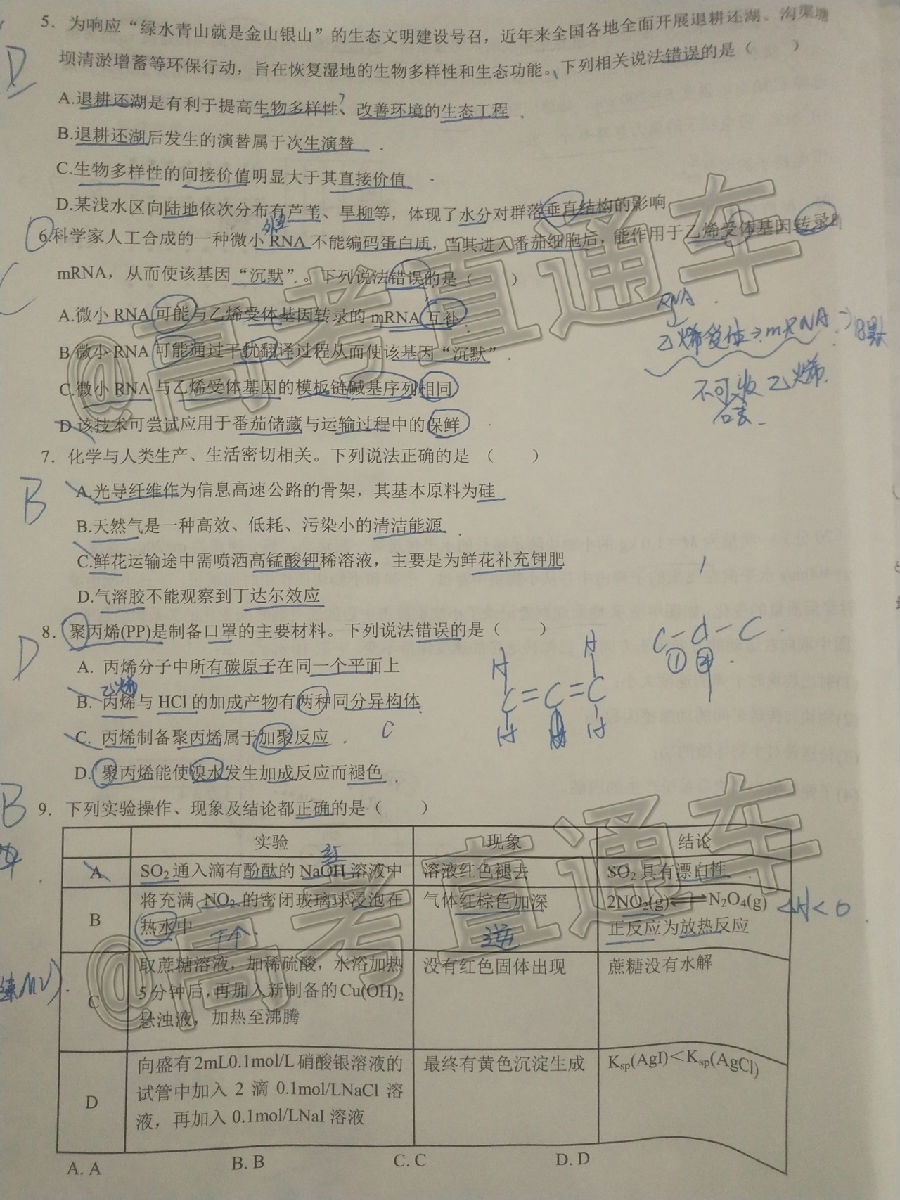 5. 为响应“绿水青山就是金山银山”的生态文明建设号召，近年来全国各地全面开展退耕还湖、沟渠塘
D
坝清淤增蓄等环保行动，旨在恢复湿地的生物多样性和生态功能。下列相关说法错误的是（ ）
A.退耕还湖是有利于提高生物多样性、改善环境的生态工程
B.退耕还湖后发生的演替属于次生演替
C.生物多样性的间接价值明显大于其直接价值
D.某浅水区向陆地依次分布有芦苇、旱柳等，体现了水分对群落垂直结构的影响
6.科学家人工合成的一种微小 RNA 不能编码蛋白质，当其进入番茄细胞后，能作用于乙烯受体基因转录的
C
mRNA，从而使该基因“沉默”。下列说法错误的是（ ）
A.微小 RNA 可能与乙烯受体基因转录的 mRNA 互补
RNA
B 微小 RNA 可能通过干扰翻译过程从而使该基因“沉默”
乙烯受体→mRNA
C.微小 RNA 与乙烯受体基因的模板链碱基序列相同
不可收乙烯
D.该技术可尝试应用于番茄储藏与运输过程中的保鲜
7. 化学与人类生产、生活密切相关。下列说法正确的是 （ ）
B
A.光导纤维作为信息高速公路的骨架，其基本原料为硅
B.天然气是一种高效、低耗、污染小的清洁能源
C.鲜花运输途中需喷洒高锰酸钾稀溶液，主要是为鲜花补充钾肥
D.气溶胶不能观察到丁达尔效应
8. 聚丙烯(PP)是制备口罩的主要材料。下列说法错误的是（ ）
D
C-C-C
① ②
A. 丙烯分子中所有碳原子在同一个平面上
H H
乙烯
B. 丙烯与 HCl 的加成产物有两种同分异构体
C=C=C
C. 丙烯制备聚丙烯属于加聚反应
C
H H H
D. 聚丙烯能使溴水发生加成反应而褪色
9. 下列实验操作、现象及结论都正确的是（ ）
B
实验 现象 结论
A SO2 通入滴有酚酞的 NaOH 溶液中 溶液红色褪去 SO2 具有漂白性
B 将充满 NO2 的密闭玻璃球浸泡在 气体红棕色加深 2NO2(g)⇌N2O4(g)
△H<0
热水中 逆 正反应为放热反应
C 取蔗糖溶液，加稀硫酸，水浴加热 没有红色固体出现 蔗糖没有水解
5分钟后，再加入新制备的Cu(OH)2
悬浊液，加热至沸腾
D 向盛有2mL0.1mol/L硝酸银溶液的 最终有黄色沉淀生成 Ksp(AgI)<Ksp(AgCl)
试管中加入 2 滴 0.1mol/LNaCl 溶
液，再加入 0.1mol/LNaI 溶液
A. A B. B C. C D. D
@高考直通车
@高考直通车